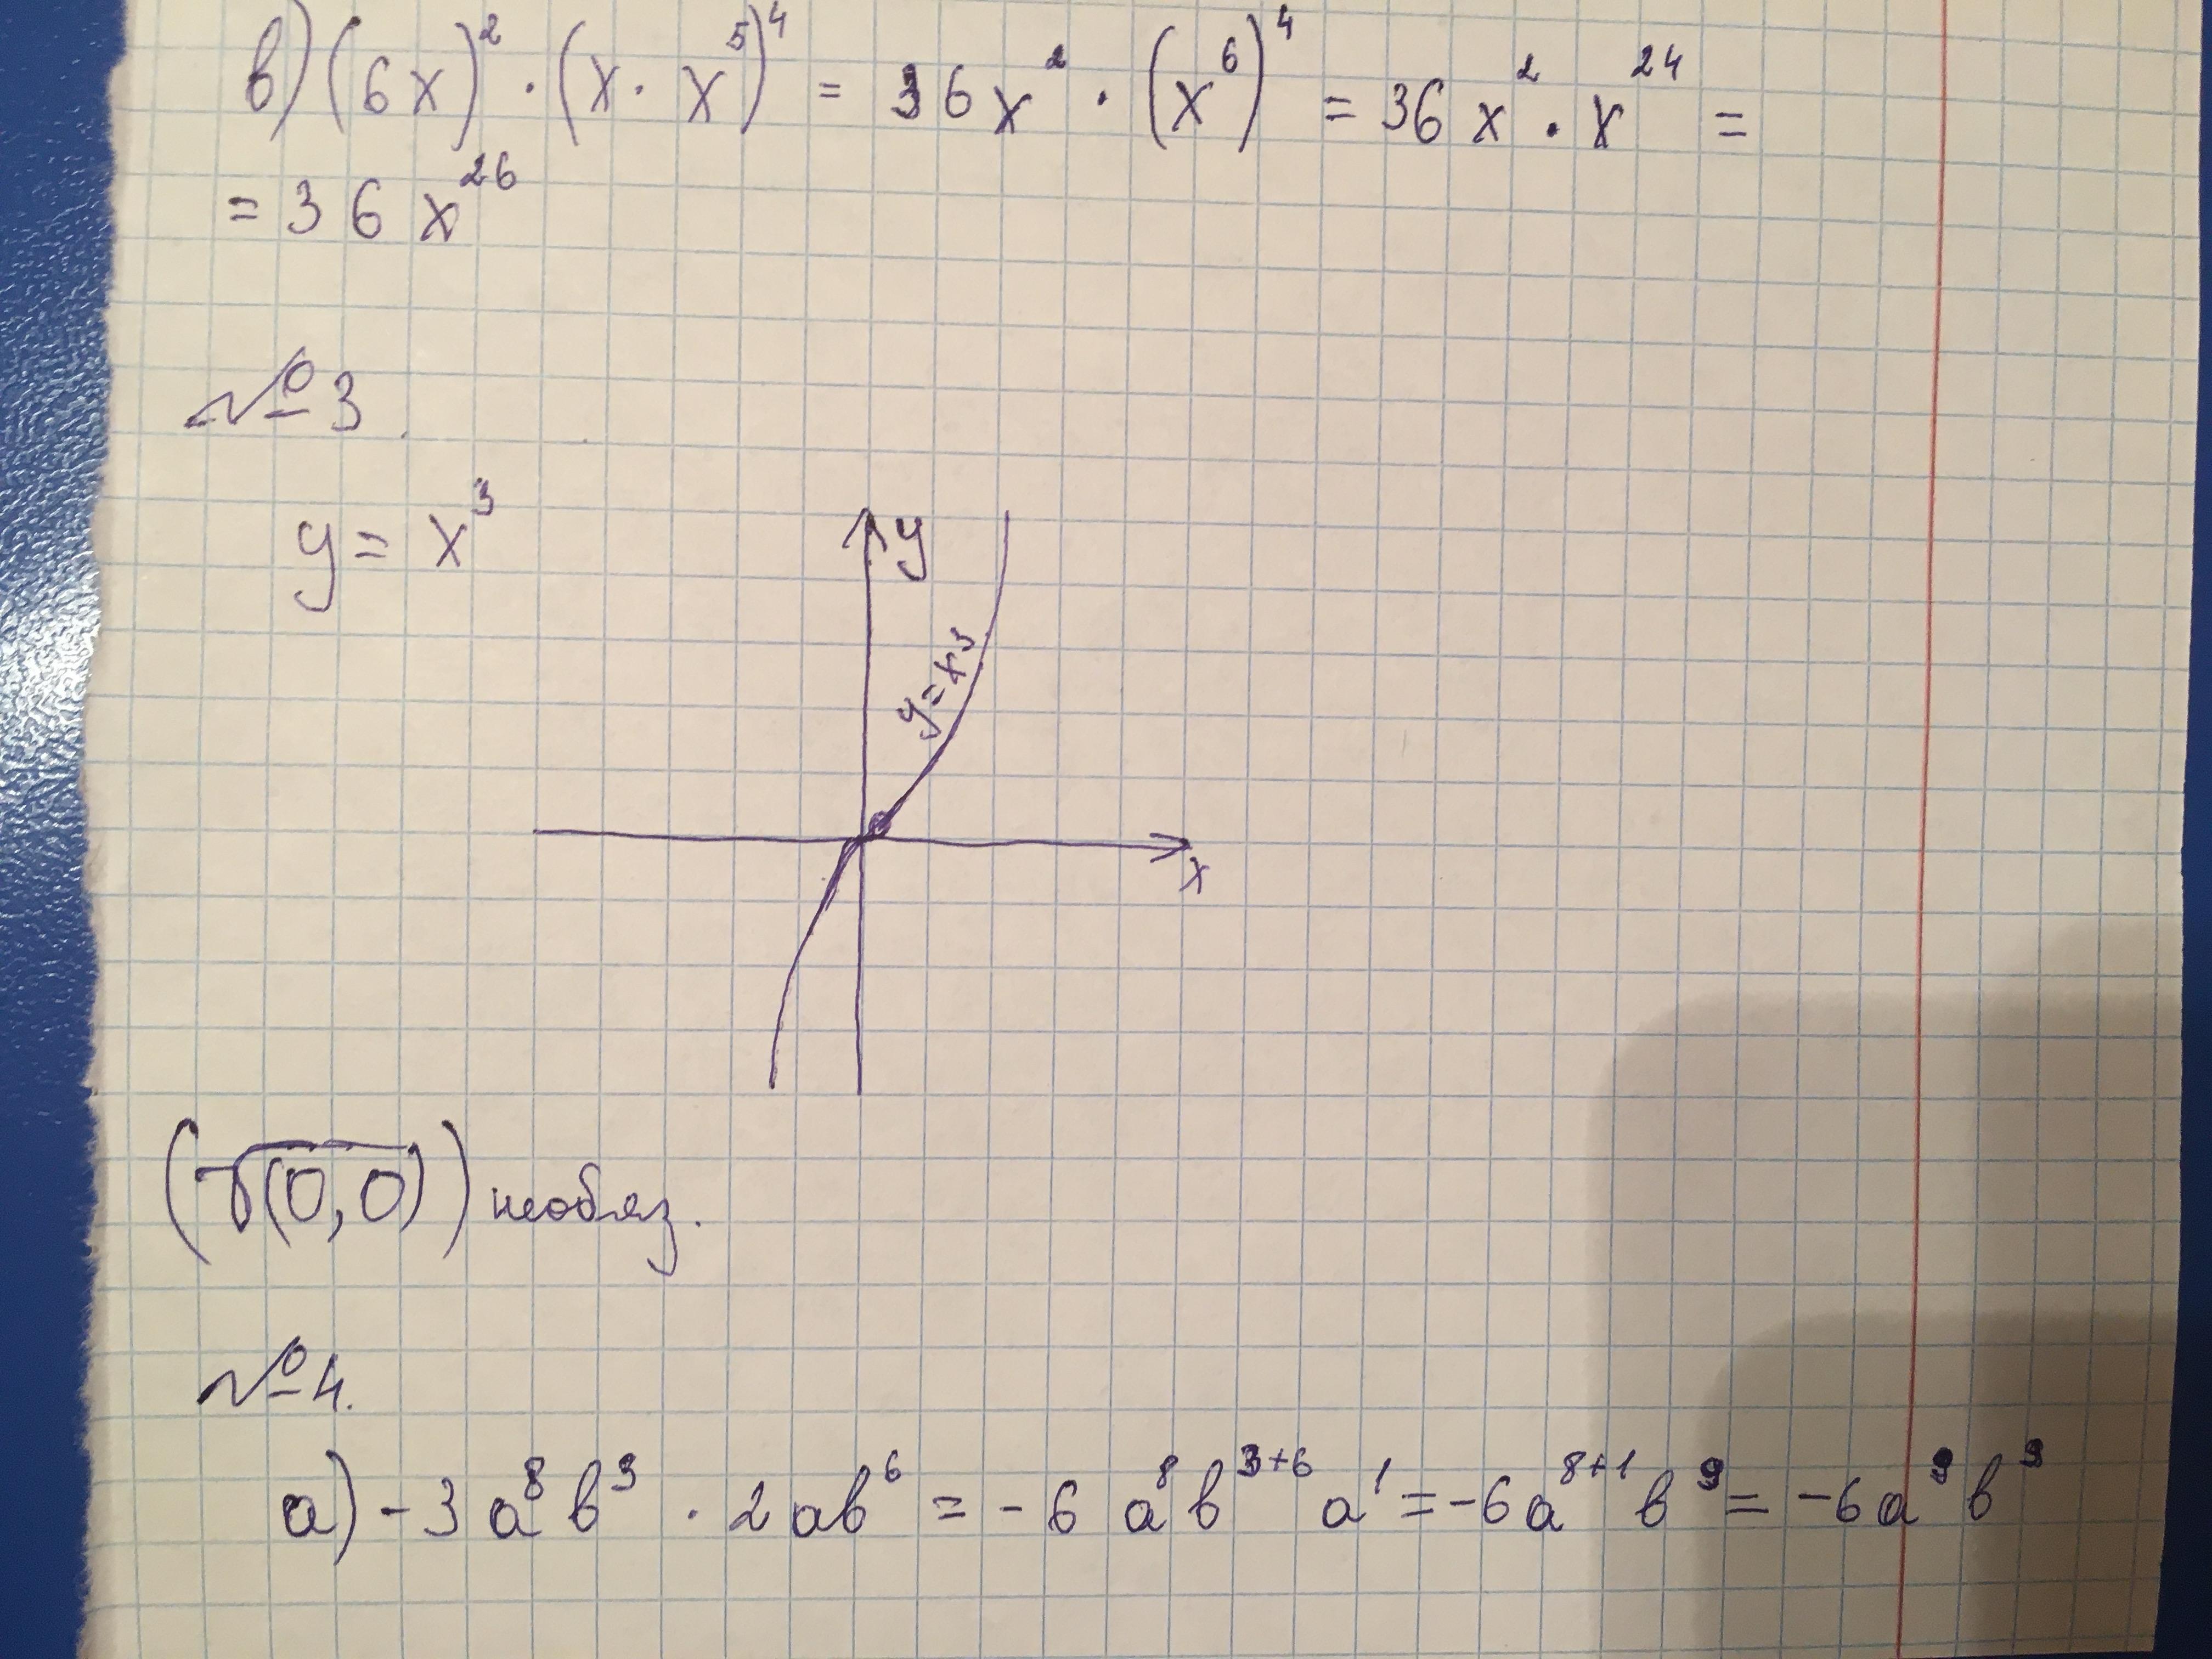 в) (6x)² · (x · x⁵)⁴ = 36x² · (x⁶)⁴ = 36x² · x²⁴ =
= 36x²⁶
№3.
y = x³
y
y=x³
x
(T(0,0)) необяз.
№4.
а) -3a⁸b³ · 2ab⁶ = -6 a⁸b³⁺⁶a¹ = -6a⁸⁺¹b⁹ = -6a⁹b⁹